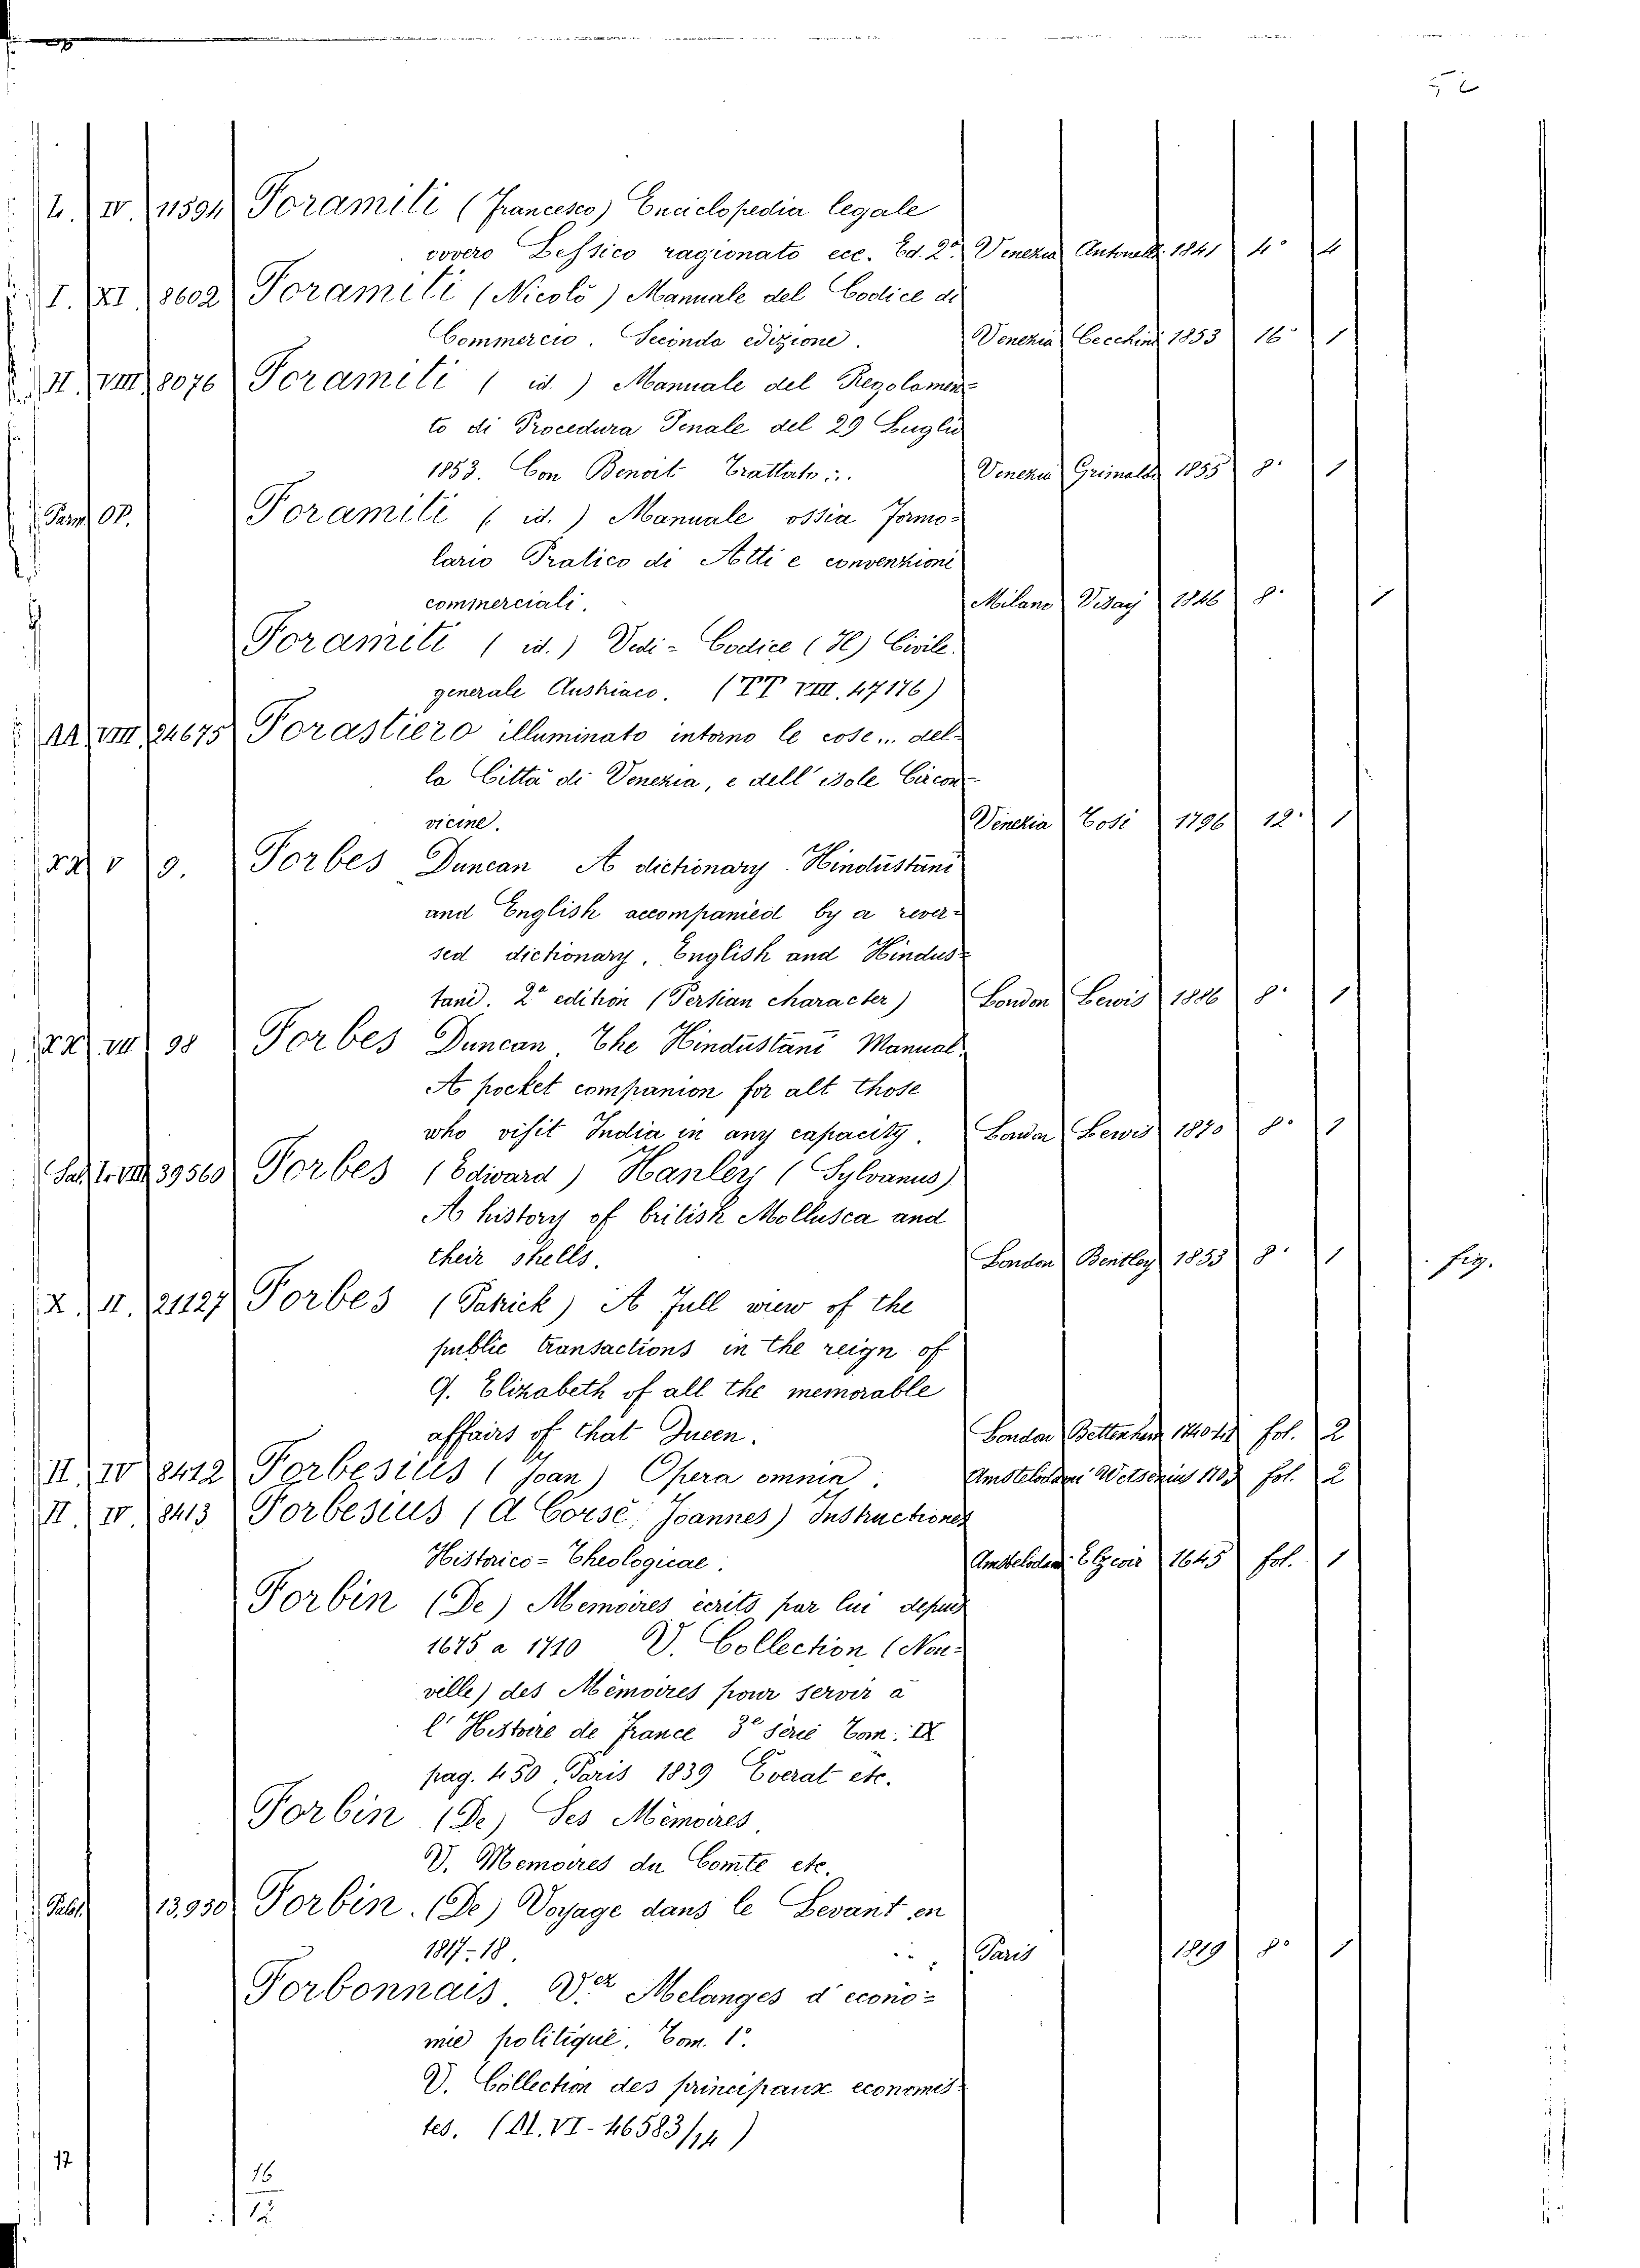 L. IV. 11594 Foramiti (Francesco) Enciclopedia legale
ovvero Lessico ragionato ecc. Ed. 2ª Venezia Antonelli 1841 4° 4
I. XI. 8602 Foramiti (Nicolò) Manuale del Codice di
Commercio. Seconda edizione. Venezia Cecchini 1853 16° 1
II. VIII. 8076 Foramiti (id.) Manuale del Regolamen-
to di Procedura Penale del 29 Luglio
1853. Con Benoit Trattato... Venezia Grimaldo 1855 8° 1
Pam. Foramiti (id.) Manuale ossia Formo-
lario Pratico di Atti e convenzioni
commerciali. Milano Visay 1846 8° 1
Foramiti (id.) Vedi - Codice (Il) Civile
generale Austriaco. (TT VIII. 47176)
AA. VIII. 24675 Forastiero illuminato intorno le cose... del-
la Città di Venezia, e dell'isole Circon-
vicine. Venezia Tosi 1796 12° 1
V 9. Forbes Duncan A dictionary. Hindústání
and English accompanied by a rever-
sed dictionary, English and Hindus-
tani. 2ª edition (Persian character) London 8° 1
VII 98 Forbes Duncan. The Hindústání Manual.
A pocket companion for alt those
who visit India in any capacity. London 8° 1
39560 Forbes (Edward) Hanley (Sylvanus)
A history of british Mollusca and
their shells. London Bentley 1853 8° 1 fig.
X. II. 21127 Forbes (Patrick) A full view of the
public transactions in the reign of
Q. Elizabeth of all the memorable
affairs of that Queen. London fol. 2
II. IV 8412 Forbesius (Joan) Opera omnia. fol. 2
II. IV. 8413 Forbesius (A Corse, Joannes) Instructiones
Historico-Theologicae. Amstelodam. Elzevir 1645 fol. 1
Forbin (De) Memoires écrits par lui depuis
1675 a 1710 V. Collection (Nou-
velle) des Mémoires pour servir a
l'Histoire de France 3e Série Tom. IX
pag. 450. Paris 1839 Everat etc.
Forbin (De) Ses Mémoires.
V. Memoires du Comte etc.
13,930 Forbin. (De) Voyage dans le Levant en
1817-18. Paris 1819 8° 1
Forbonnais. Melanges d'econo-
mie politique. Tom. 1°.
V. Collection des principaux economis-
tes. (VI-46583/14)
17
16